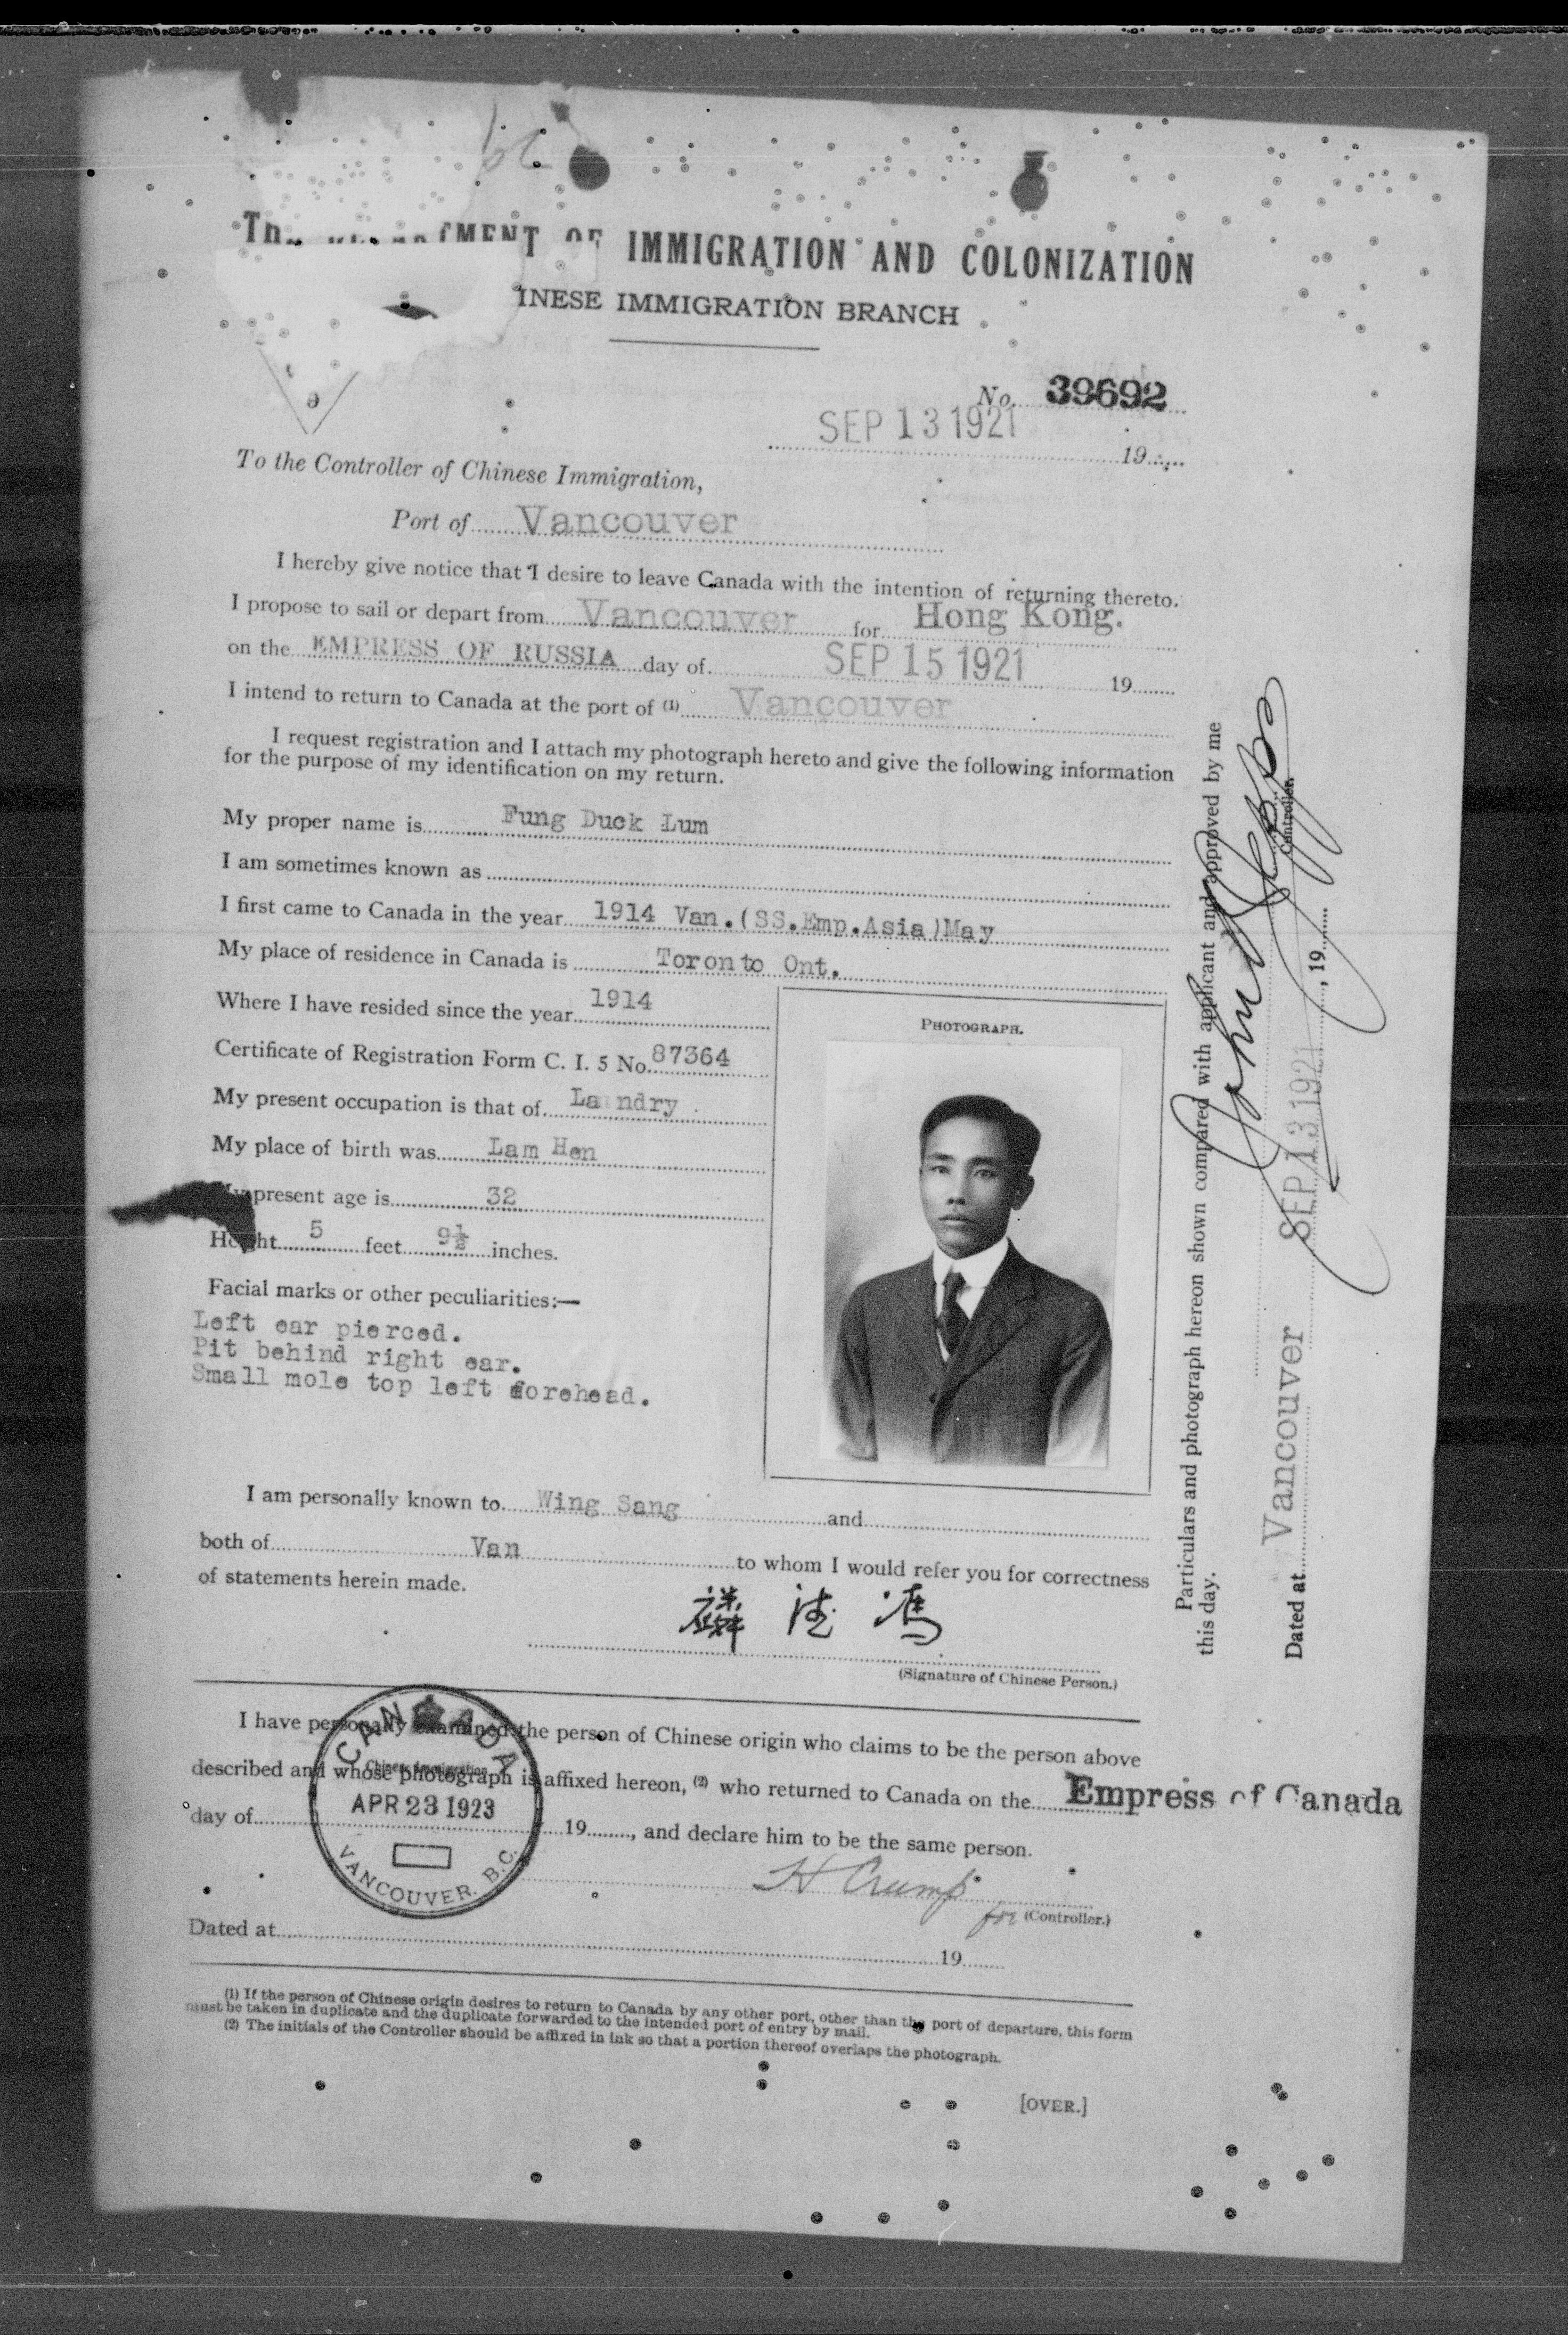 MENT OF IMMIGRATION AND COLONIZATION
INESE IMMIGRATION BRANCH
No. 39692
SEP 13 1921 19
To the Controller of Chinese Immigration,
Port of Vancouver
I hereby give notice that I desire to leave Canada with the intention of returning thereto.
I propose to sail or depart from Vancouver for Hong Kong.
on the EMPRESS OF RUSSIA day of SEP 15 1921 19
I intend to return to Canada at the port of (1) Vancouver
I request registration and I attach my photograph hereto and give the following information
for the purpose of my identification on my return.
My proper name is Fung Duck Lum
I am sometimes known as
I first came to Canada in the year 1914 Van.(SS.Emp.Asia)May
My place of residence in Canada is Toronto Ont.
Where I have resided since the year 1914
Certificate of Registration Form C. I. 5 No. 87364
My present occupation is that of La ndry
My place of birth was Lam Hen
My present age is 32
Height 5 feet 9½ inches.
Facial marks or other peculiarities:—
Left ear pierced.
Pit behind right ear.
Small mole top left forehead.
PHOTOGRAPH.
I am personally known to Wing Sang and
both of Van to whom I would refer you for correctness
of statements herein made.
麟 德 馮
(Signature of Chinese Person.)
I have personally examined the person of Chinese origin who claims to be the person above
described and whose photograph is affixed hereon, (2) who returned to Canada on the Empress of Canada
day of 19, and declare him to be the same person.
CANADA
Chinese Immigration
APR 23 1923
VANCOUVER. B.C.
H Crump
for (Controller.)
Dated at 19
(1) If the person of Chinese origin desires to return to Canada by any other port, other than the port of departure, this form
must be taken in duplicate and the duplicate forwarded to the intended port of entry by mail.
(2) The initials of the Controller should be affixed in ink so that a portion thereof overlaps the photograph.
[OVER.]
Particulars and photograph hereon shown compared with applicant and approved by me
this day.
Controller.
Dated at Vancouver SEP 13 1921, 19